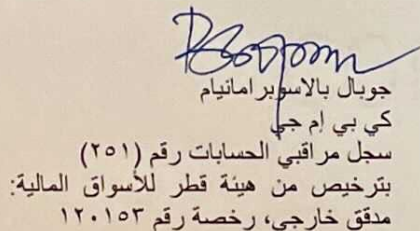 جوبال بالاسوبرامانيام
كي بي إم جي
سجل مراقبي الحسابات رقم (٢٥١)
بترخيص من هيئة قطر للأسواق المالية:
مدقق خارجي، رخصة رقم ١٢٠١٥٣